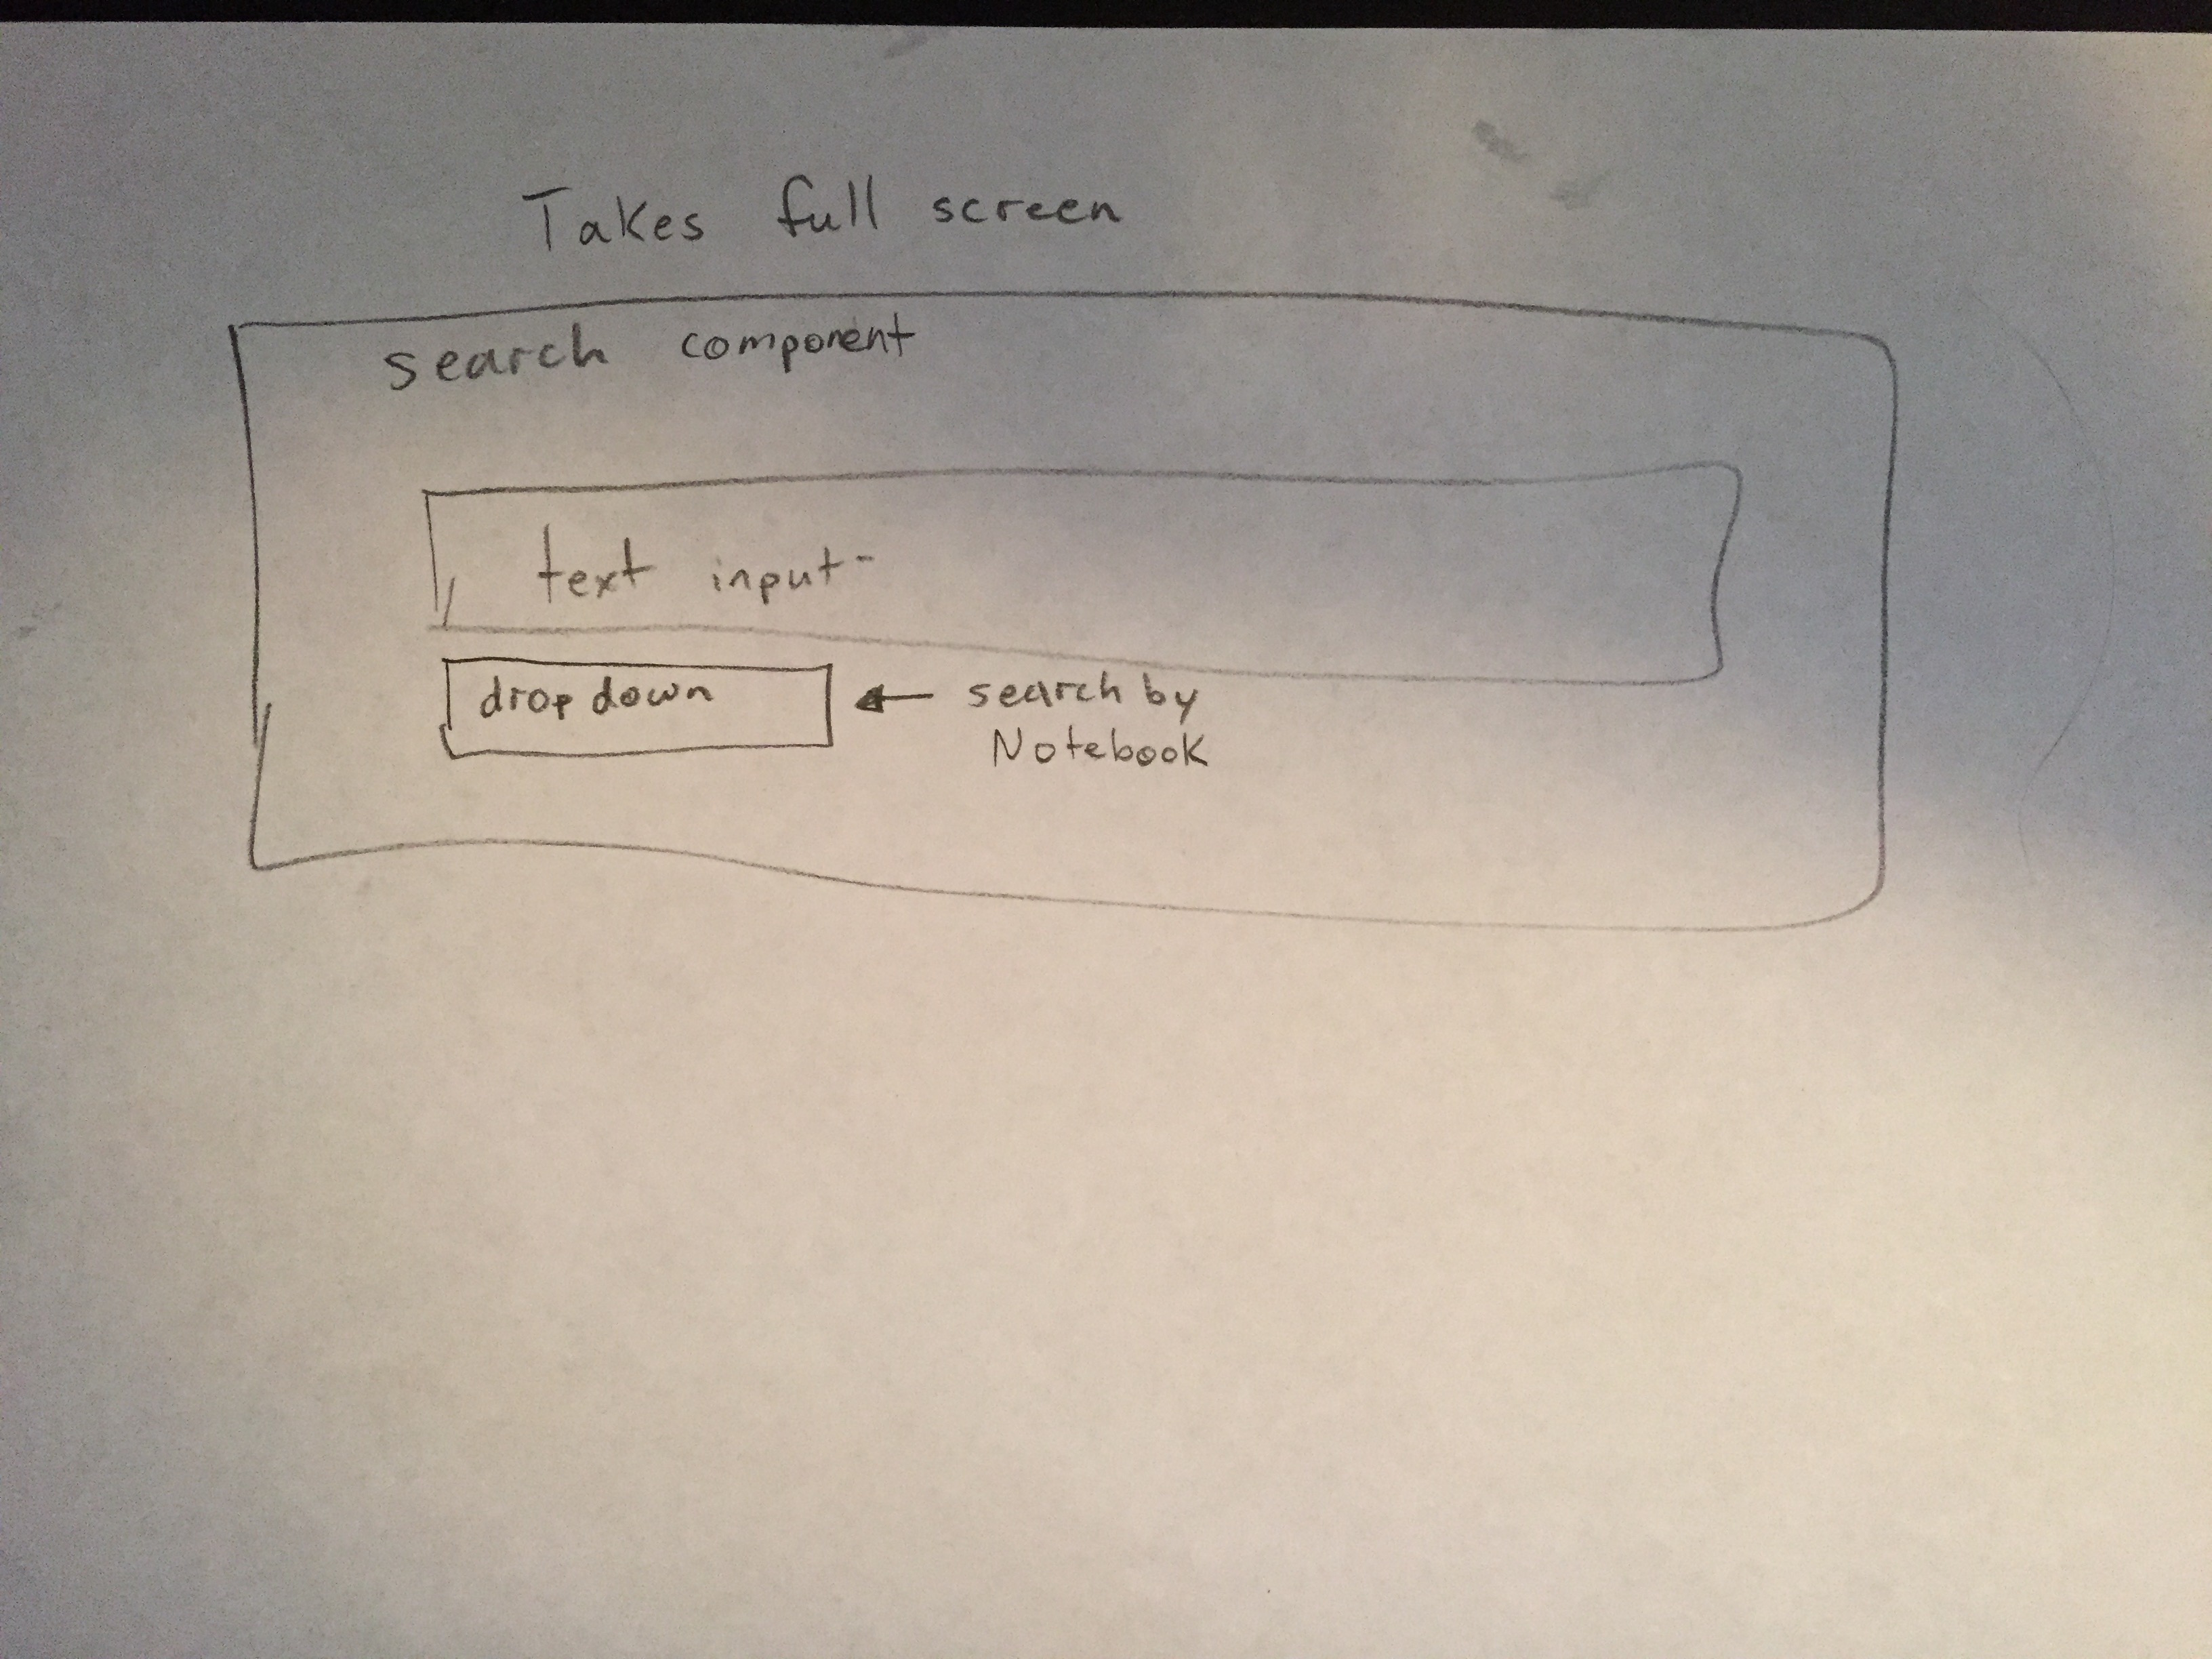 Takes full screen
search component
text input
drop down ← search by
Notebook